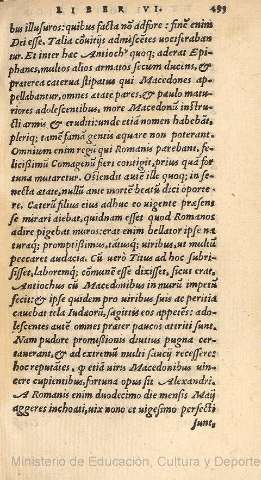 LIBER VI. 499
bus illusuros: quibus facta nō adfore: finē enim
Dei esse. Talia cōuitijs admiscētes uociferaban
tur. Et inter hæc Antioch⁹ quoq; aderat Epi-
phanes, multos alios armatos secum ducens, &
præterea caterua stipatus qui Macedones ap-
pellabantur, omnes ætate pares, & paulo matu-
riores adolescentibus, more Macedonū instru-
cti armis & eruditi: unde etiā nomen habebāt,
pleriq; tamē famā gentis æquare non poterant.
Omnium enim regū qui Romanis parebant, fe-
licissimū Comagenū fieri contigit, prius quā for
tuna mutaretur. Ostendit autē ille quoq; in se-
necta ætate, nullū ante mortē beatū dici oporte-
re. Cæterū filius eius adhuc eo uigente præsens
se mirari aiebat, quidnam esset quod Romanos
adire pigebat muros: erat enim bellator ipse na
turaq; promptissimus, tātoq; uiribus, ut multū
peccaret audacia. Cū uero Titus ad hoc subri-
sisset, laboremq; cōmunē esse dixisset, sicut erat,
Antiochus cū Macedonibus in murū impetū
fecit: & ipse quidem pro uiribus suis ac peritia
cauebat tela Iudæorū, sagittis eos appetēs: ado-
lescentes autē omnes præter paucos attriti sunt.
Nam pudore promissionis diutius pugna cer-
tauerant, & ad extremū multi saucij recessere:
hoc reputātes, q̄ etiā ueris Macedonibus uin-
cere cupientibus, fortuna opus sit Alexandri.
A Romanis enim duodecimo die mensis Maij
aggeres inchoati, uix nono et uigesimo perfecti
sunt,
Ministerio de Educación, Cultura y Deporte